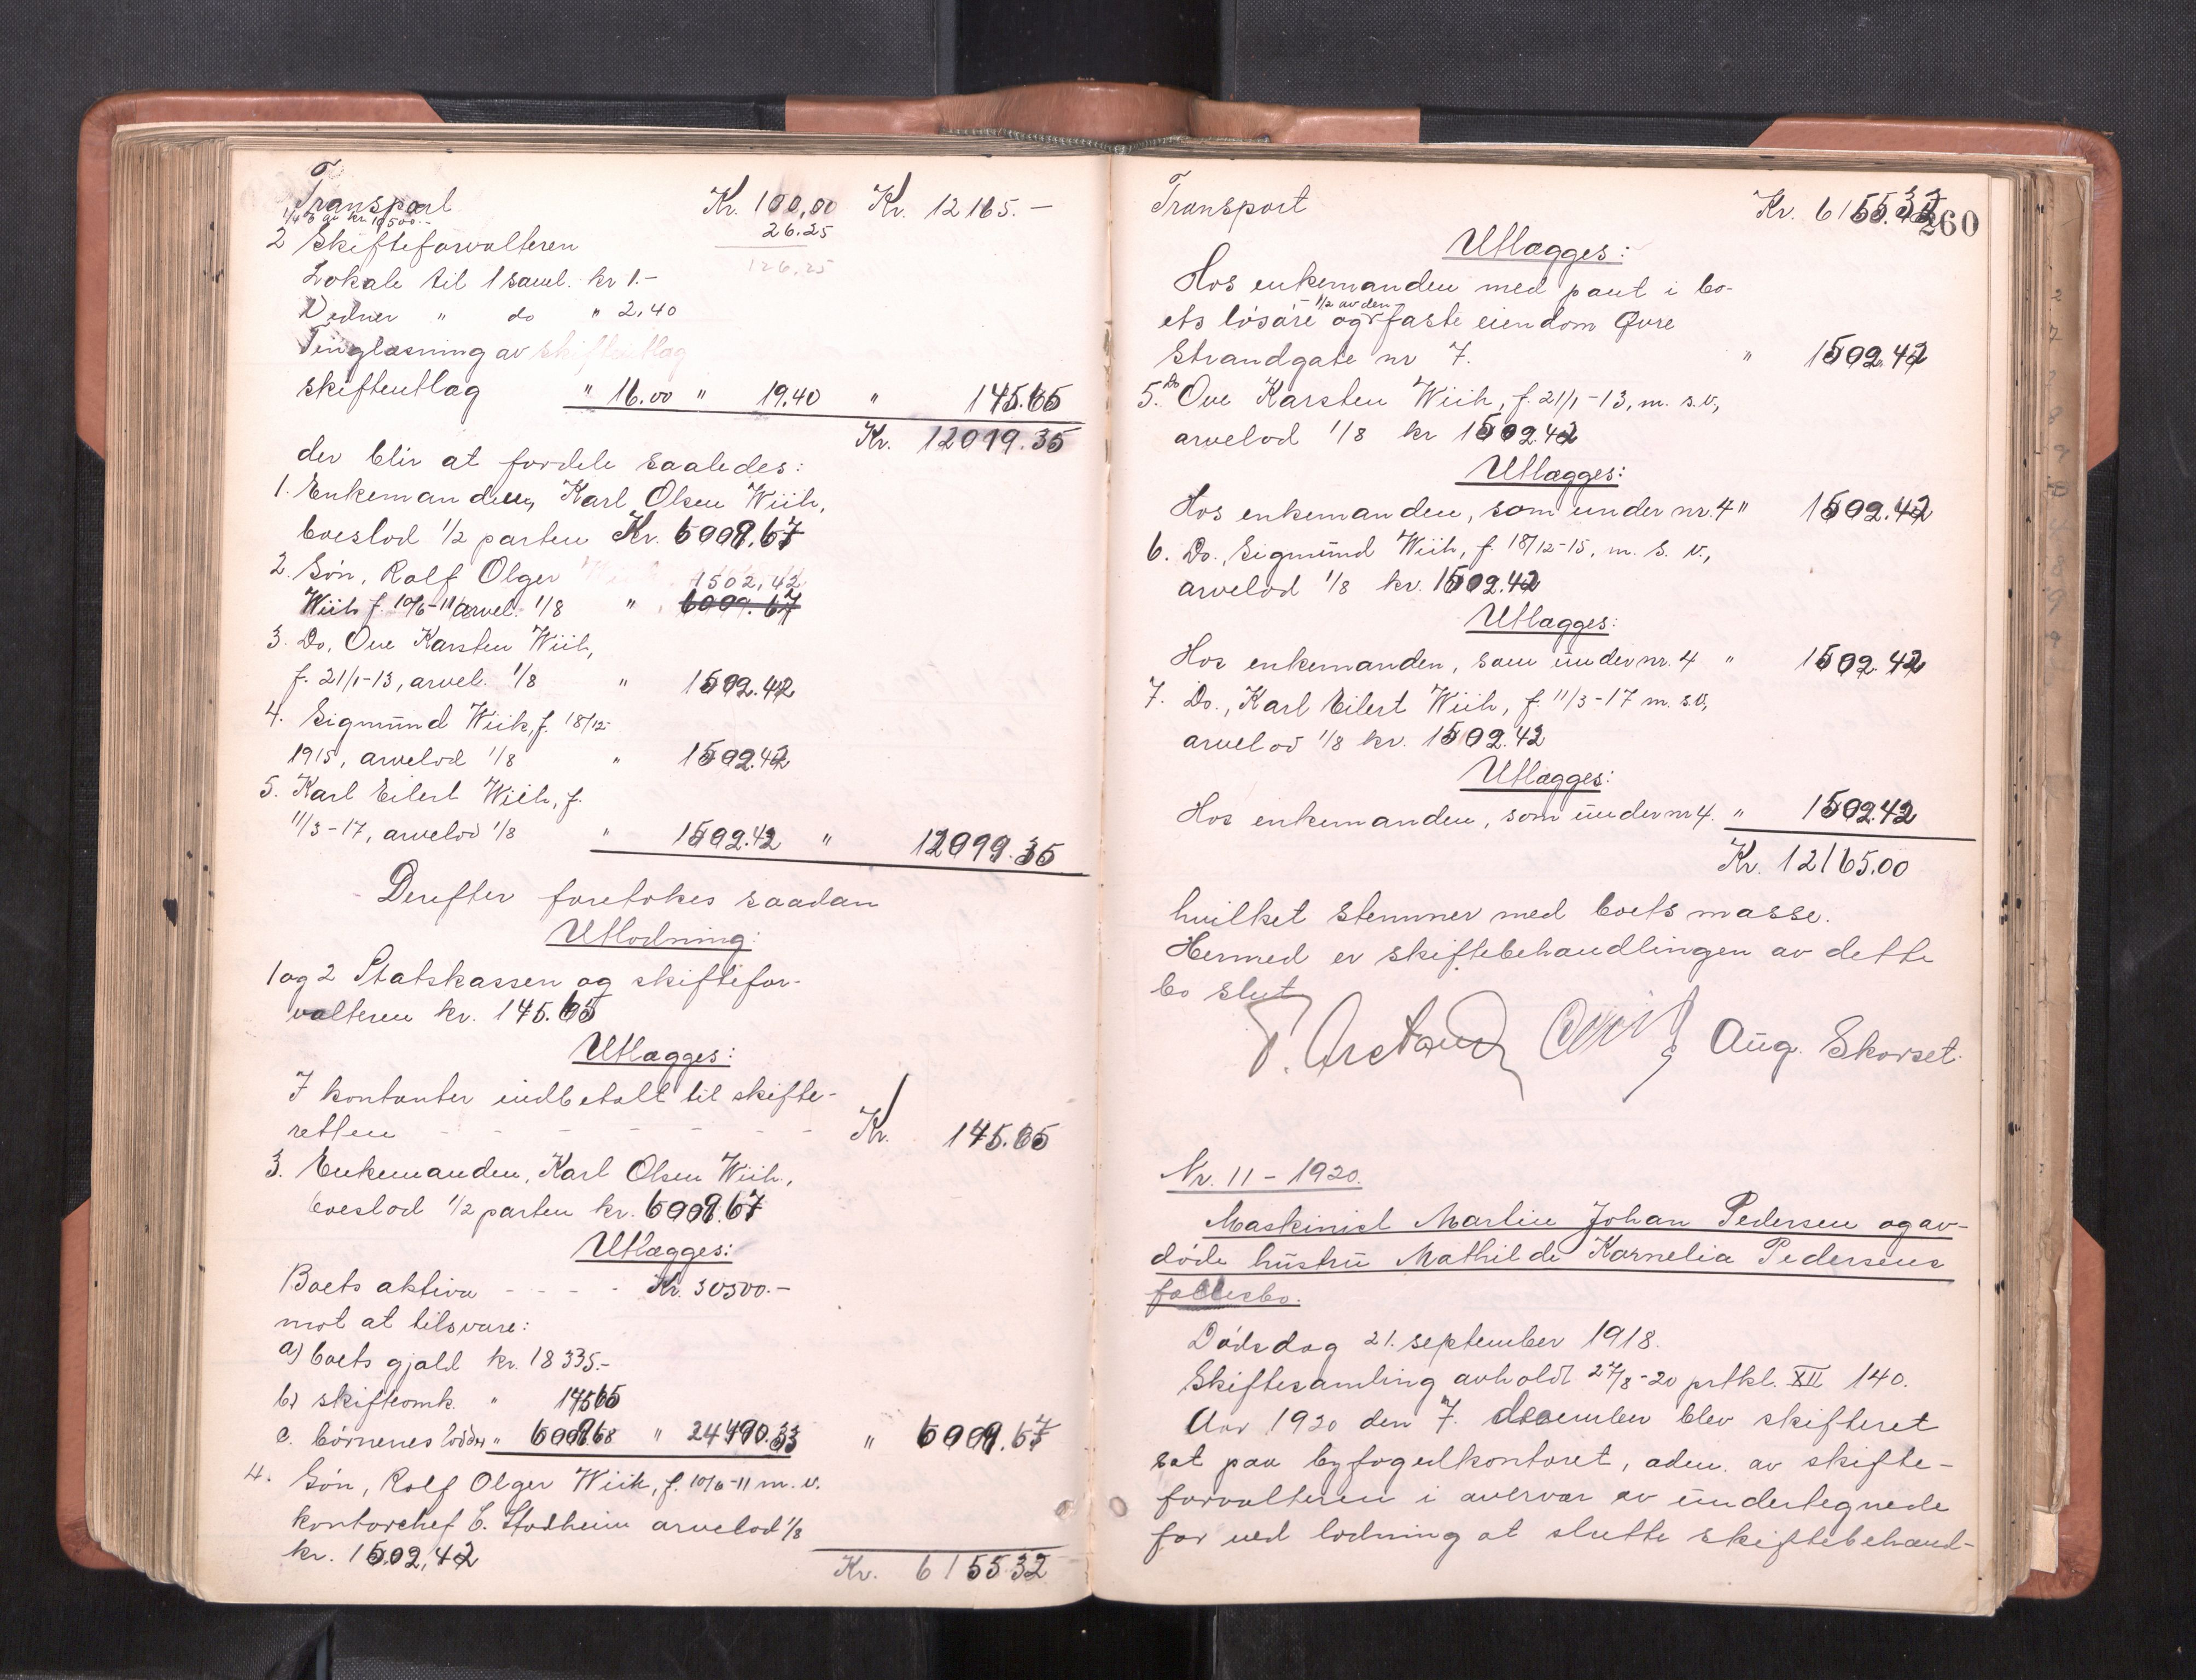 Transport Kr. 100,00 Kr. 12165.-
1/4 % av kr 10500.-
2 Skifteforvalteren 26.25
126.25
Lokale til 1 saml. kr 1.-
Vidner " do " 2.40
Tinglæsning av skifteutlæg
skifteutlæg " 16.00 " 19.40 " 145.65
Kr. 12019.35
der blir at fordele saaledes:
1. Enkemanden, Karl Olsen Wiik,
boeslod 1/2 parten Kr. 6009.67
2. Søn, Rolf Olger 1502,42
Wiik f. 10/6-11 arvel. 1/8 " 6009.67
3. Do, Ove Karsten Wiik,
f. 21/1-13, arvel. 1/8 " 1502.42
4. Sigmund Wiik, f. 18/12-
1915, arvelod 1/8 " 1502.42
5. Karl Eilert Wiik, f.
11/3-17, arvelod 1/8 " 1502.42 " 12019.35
Derefter foretokes saadan
Utlodning:
1 og 2 Statskassen og skiftefor-
valteren kr. 145.65
Utlægges:
I kontanter indbetalt til skifte-
retten - - - - - - - Kr. 145.65
3. Enkemanden, Karl Olsen Wiik,
boeslod 1/2 parten kr. 6009.67
Utlægges:
Boets aktiva - - - - Kr. 30500.-
mot at tilsvare:
a) boets gjæld kr. 18335.-
b) skifteomk. " 145.65
c. børnenes lodder " 6009.68 " 24490.33 " 6009.67
4. Søn, Rolf Olger Wiik, f. 10/6-11 m. v.
kontorchef C. Stodheim arvelod 1/8
kr. 1502,42
Kr. 6155.32
Transport Kr. 6155.32
260
Utlægges:
Hos enkemanden med pant i bo-
ets løsøre og 1/2 av den faste eiendom Øvre
Strandgate nr 7. " 1502.42
5. Do Ove Karsten Wiik, f. 21/1-13, m. s.v.,
arvelod 1/8 kr 1502.42
Utlægges:
Hos enkemanden, som under nr. 4 " 1502.42
6. Do., Sigmund Wiik, f. 18/12-15, m. s. v.,
arvelod 1/8 kr. 1502.42
Utlægges:
Hos enkemanden, som under nr. 4 " 1502.42
7. Do., Karl Eilert Wiik, f. 11/3-17 m. s.v.,
arvelod 1/8 kr. 1502.42
Utlægges:
Hos enkemanden, som under nr 4. " 1502.42
Kr. 12165.00
hvilket stemmer med boets masse.
Hermed er skiftebehandlingen av dette
bo slut.
Aug. Skorset.
Nr. 11 - 1920.
Maskinist Martin Johan Pedersen og av-
døde hustru Mathilde Kornelia Pedersens
fællesbo.
Dødsdag 21. september 1918.
Skiftesamling avholdt 27/8-20 prtkl. XII 140.
Aar 1920 den 7. december blev skifteret
sat paa byfogedkontoret, adm. av skifte-
forvalteren i overvær av undertegnede
for ved lodning at slutte skiftebehand-